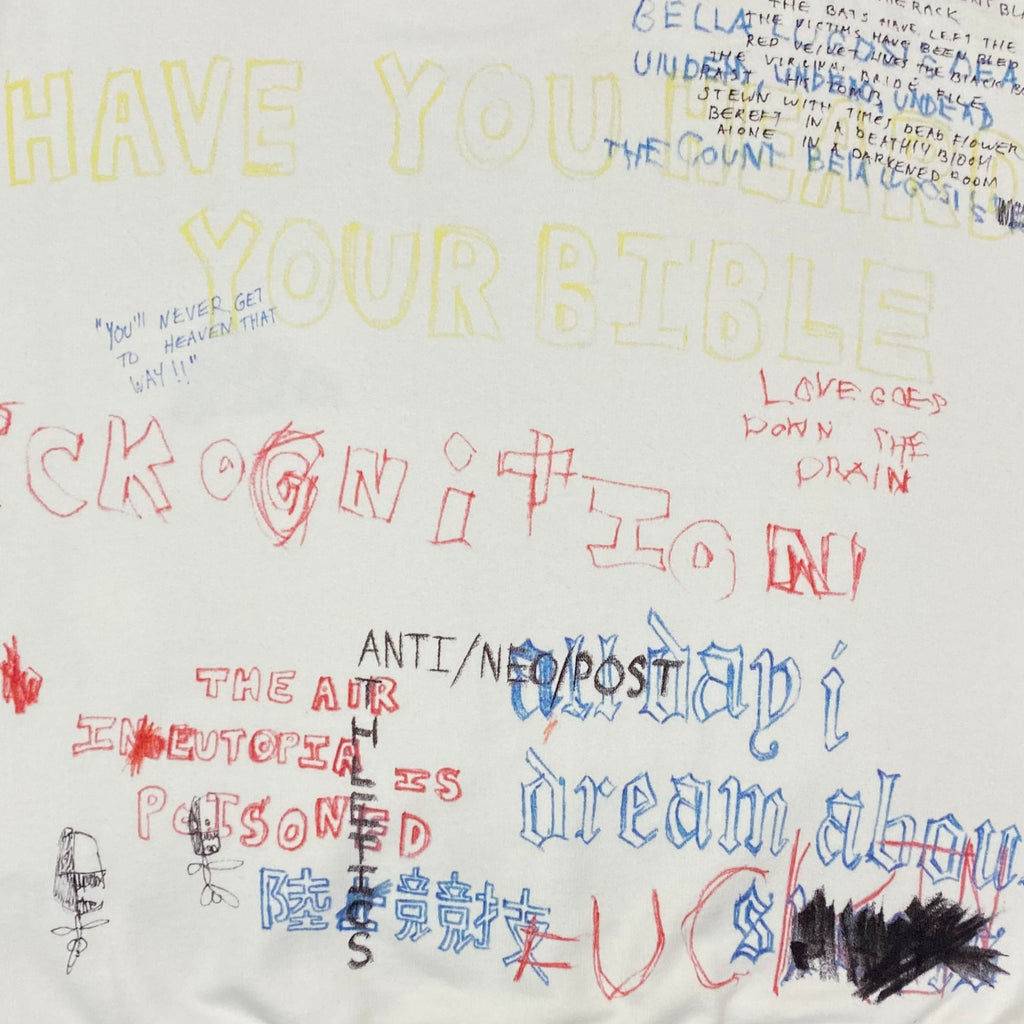 THE RACK
THE BATS HAVE LEFT THE
THE VICTIMS HAVE BEEN BLED
RED VELVET LINES THE BLACK
THE VIRGINAL BRIDE FILE
PAST HIS TOMB
STEWN WITH TIMES DEAD FLOWER
BEREFT IN A DEATHLY BLOOM
ALONE IN A DARKENED ROOM
BELLA LUGOSI'S DEA
UNDEAD, UNDEAD, UNDEAD
THE COUNT BELA LUGOSI'S
HAVE YOU HEARD
YOUR BIBLE
"YOU'll NEVER GET
TO HEAVEN THAT
WAY!!"
LOVE GOES
DOWN THE
DRAIN
CKOGNiTION
ANTI/NEO/POST
ATHLETICS
all day i
dream abou
THE AIR
IN EUTOPIA IS
POISONED
陸上競競技
FUC